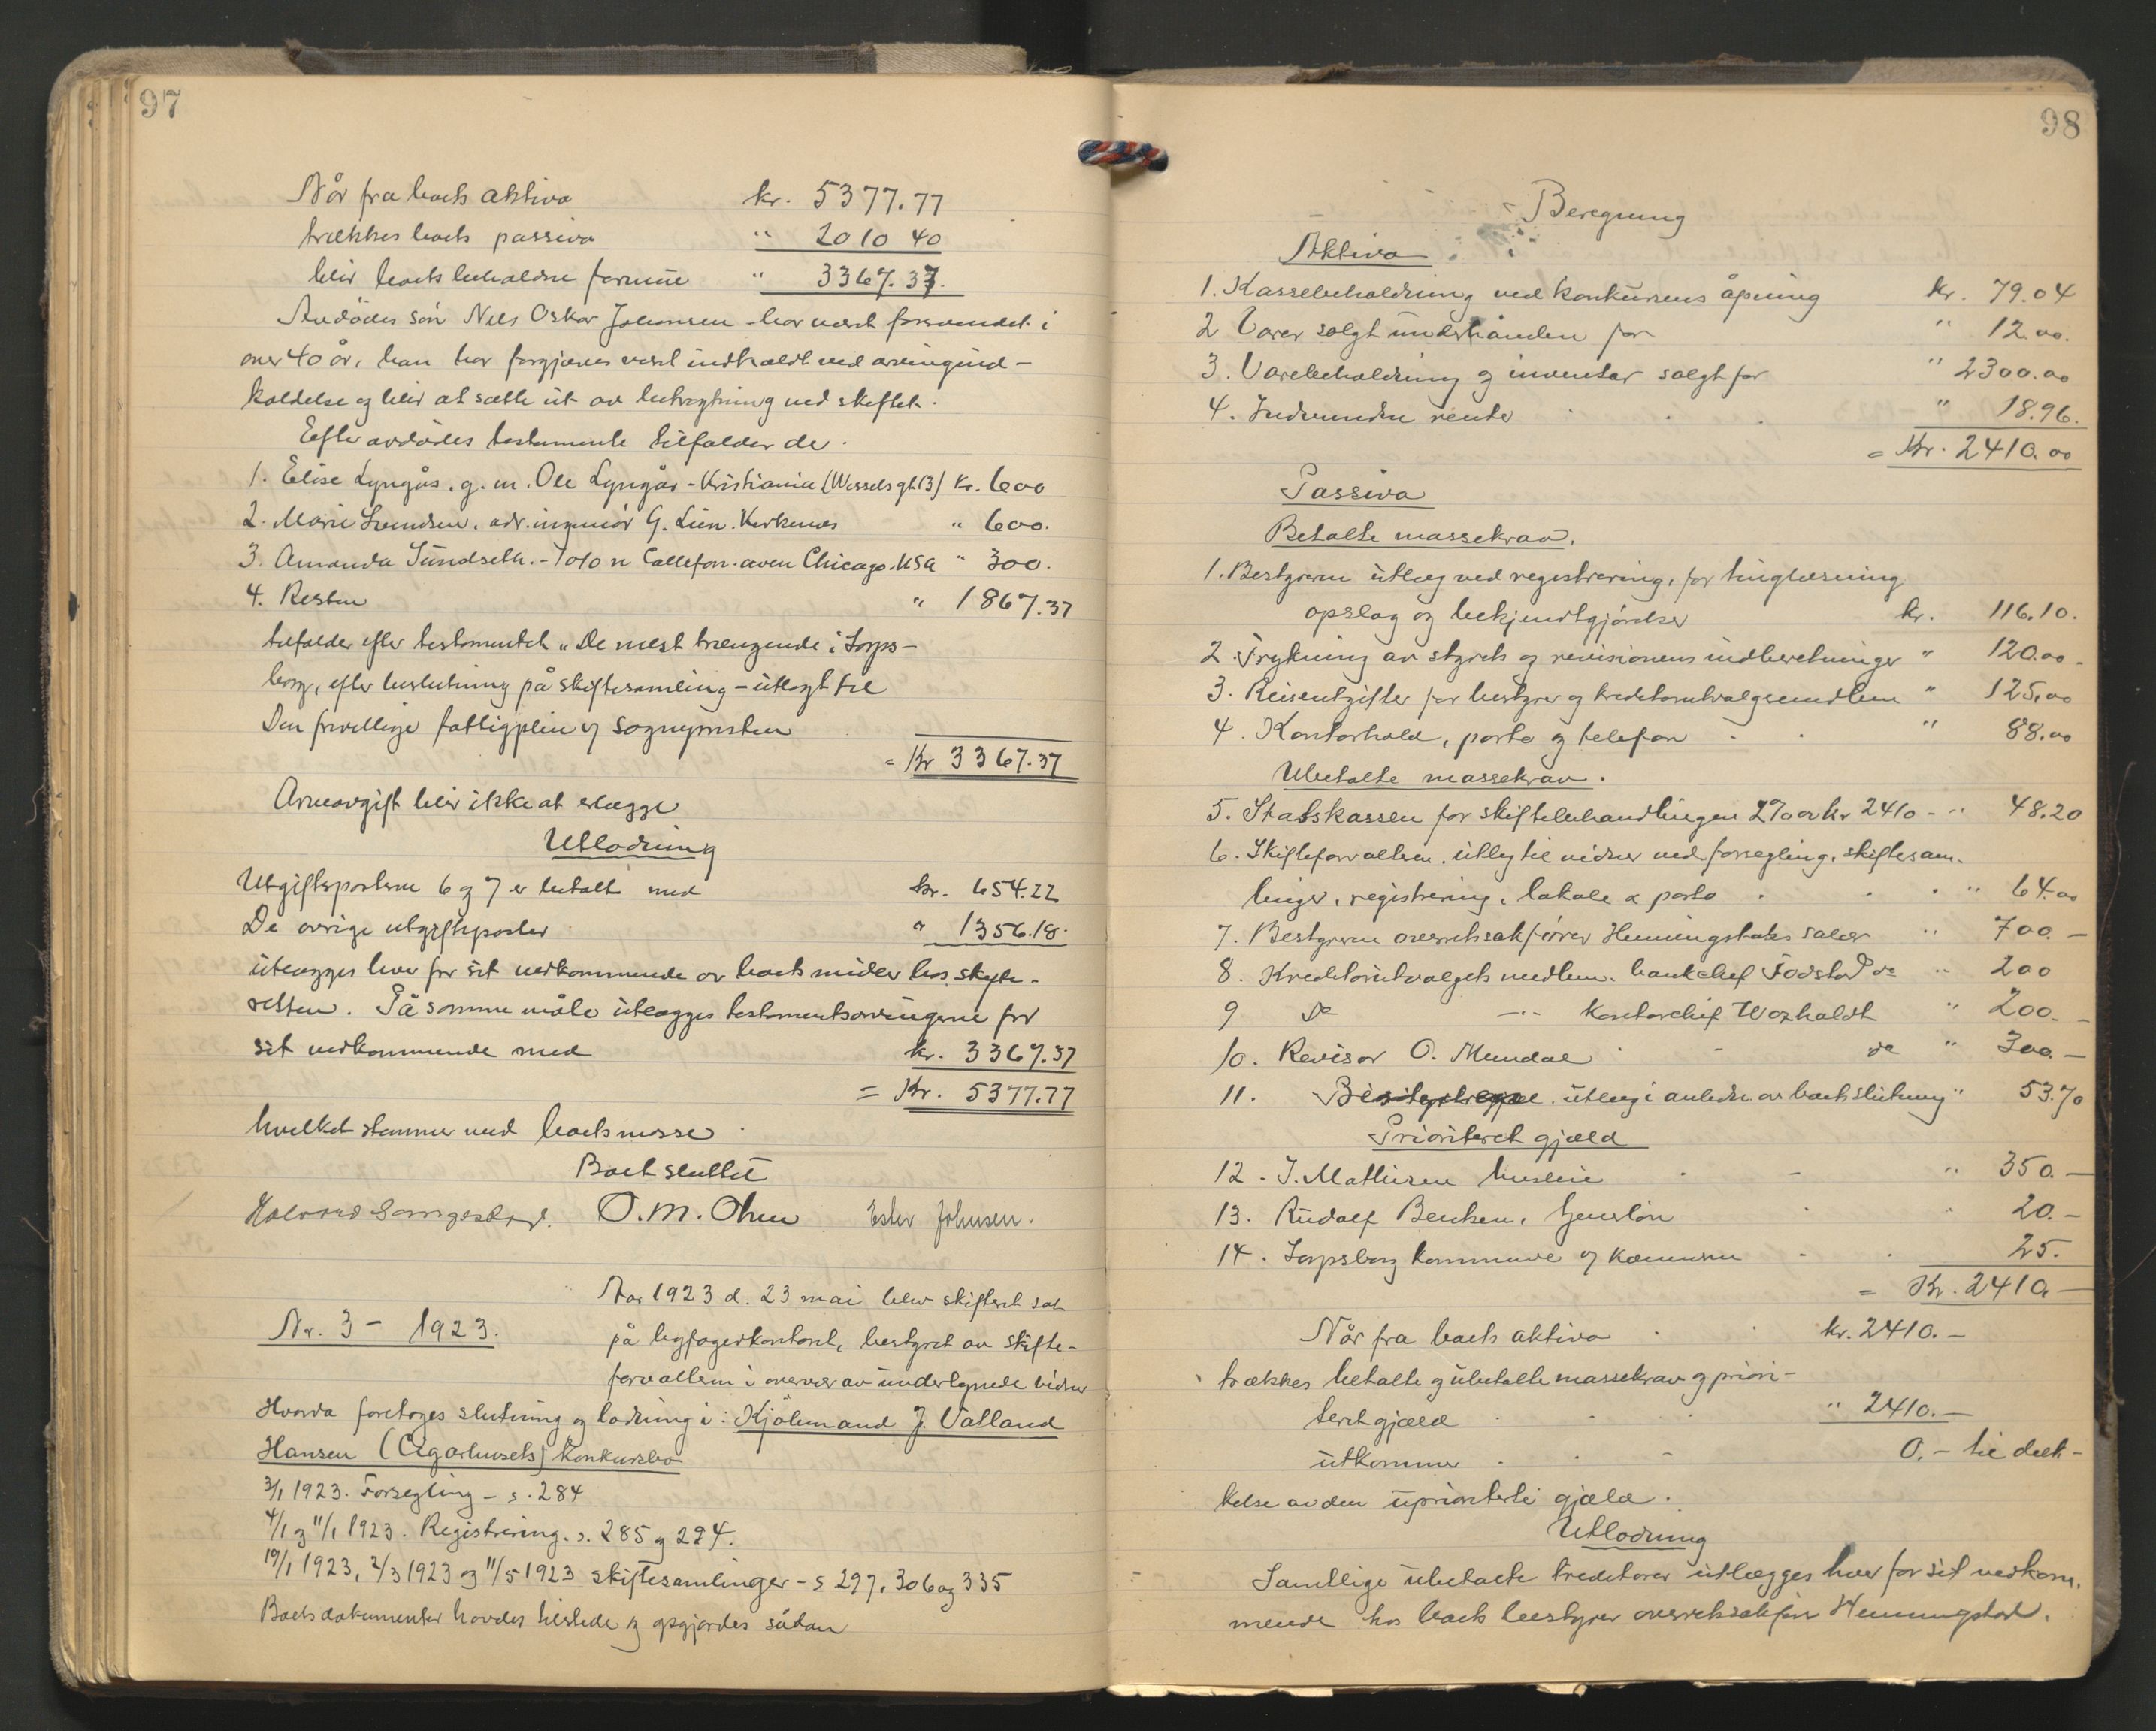 97
Når fra boets aktiva kr. 5377.77
trækkes boets passiva " 2010 40
blir boets beholdne formue " 3367.37.
Avdødes søn Nils Oskar Johansen har været forsvundet i
over 40 år, han har forgjæves været indkaldt ved arvingind-
kaldelse og blir at sætte ut av betragtning ved skiftet.
Efter avdødes testamente tilfalder de
1. Elise Lyngås, g. m. Ole Lyngås - Kristiania (Wessels gt 13) Kr. 600
2. Marie Svendsen, adr. ingeniør G. Lien. Kirkenes " 600.
3. Amanda Sundseth. - 1010 n Callefon. aven Chicago. USA " 300.
4. Resten " 1867.37
tilfalder efter testamentet „De mest trængende i Sarps-
borg, efter beslutning på skiftesamling - utlagt til
Den frivillige fattigpleie og sognepresten
= Kr 3367.37
Arveavgift blir ikke at erlægge
Utlodning
Utgiftsposterne 6 og 7 er betalt med kr. 654.22
De øvrige utgiftsposter " 1356.18.
utlægges hver for sit vedkommende av boets midler hos skifte-
retten. På samme måte utlægges testamentsarvingerne for
sit vedkommende med kr. 3367.37
= Kr. 5377.77
hvilket stemmer med boets masse.
Boet sluttet
O. M. Olsen Ester Johnsen.
Nr. 3 - 1923.
Aar 1923 d. 23 mai blev skifteret sat
på byfogedkontoret, bestyret av skifte-
forvalteren i overvær av undertegnede vidner
Hvorda foretoges slutning og lodning i: Kjøbmand J. Vatland
Hansen (Cigarhusets) konkursbo
3/1 1923. Forsegling - s. 284
4/1 og 11/1 1923. Registrering. s. 285 og 294.
19/1 1923, 2/3 1923 og 11/5 1923 skiftesamlinger - s 297, 306 og 335
Boets dokumenter havdes tilstede og opgjordes sådan
98
Beregning
Aktiva
1. Kassebeholdning ved konkursens åpning kr. 79.04
2 Varer solgt underhånden for " 12.00.
3. Varebeholdning og inventar solgt for " 2300.00
4. Indvundne renter " 18.96.
= Kr. 2410.00
Passiva
Betalte massekrav.
1. Bestyreren utlæg ved registrering, for tinglæsning
opslag og bekjendtgjørelser kr. 116.10.
2. Trykning av styrets og revisionens indberetninger " 120.00 -
3. Reiseutgifter for bestyrer og kreditorutvalgsmedlem " 125.00
4. Kontorhold, porto og telefon " 88.00
Ubetalte massekrav.
5. Statskassen for skiftebehandlingen 2% av kr 2410 - " 48.20
6. Skifteforvalteren. utlæg til vidner ved forsegling, skiftesam-
linger, registrering, lokale & porto " 64.00
7. Bestyreren overretssakfører Henningstads salær " 700. -
8. Kreditorutvalgets medlem. bankchef Fodstad do " 200
9 Do -"- kontorchef Woxholdt " 200. -
10. Revisor O. Mundal do " 300. -
11. utlæg i anledn av boets slutning " 53.70
Prioritert gjæld
12. J. Mathisen husleie " 350. -
13. Rudolf Bentsen, tjenerløn " 20. -
14. Sarpsborg kommune og kæmneren 25.
= Kr. 2410 -
Når fra boets aktiva kr. 2410. -
trækkes betalte og ubetalte massekrav og priori-
tert gjæld " 2410. -
utkommer 0. - til dæk-
kelse av den upriorterte gjæld.
Utlodning
Samtlige ubetalte kreditorer utlægges hver for sit vedkom-
mende hos boets bestyrer overretssakfører Henningstad.